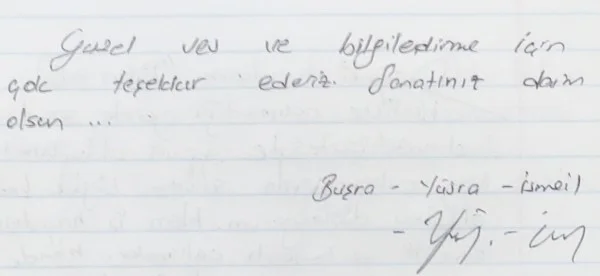 Güzel ve ve bilgiledirme için
çok teşekkür ederiz. Sanatınız daim
olsun ...
Buşra - Yüsra - ismail